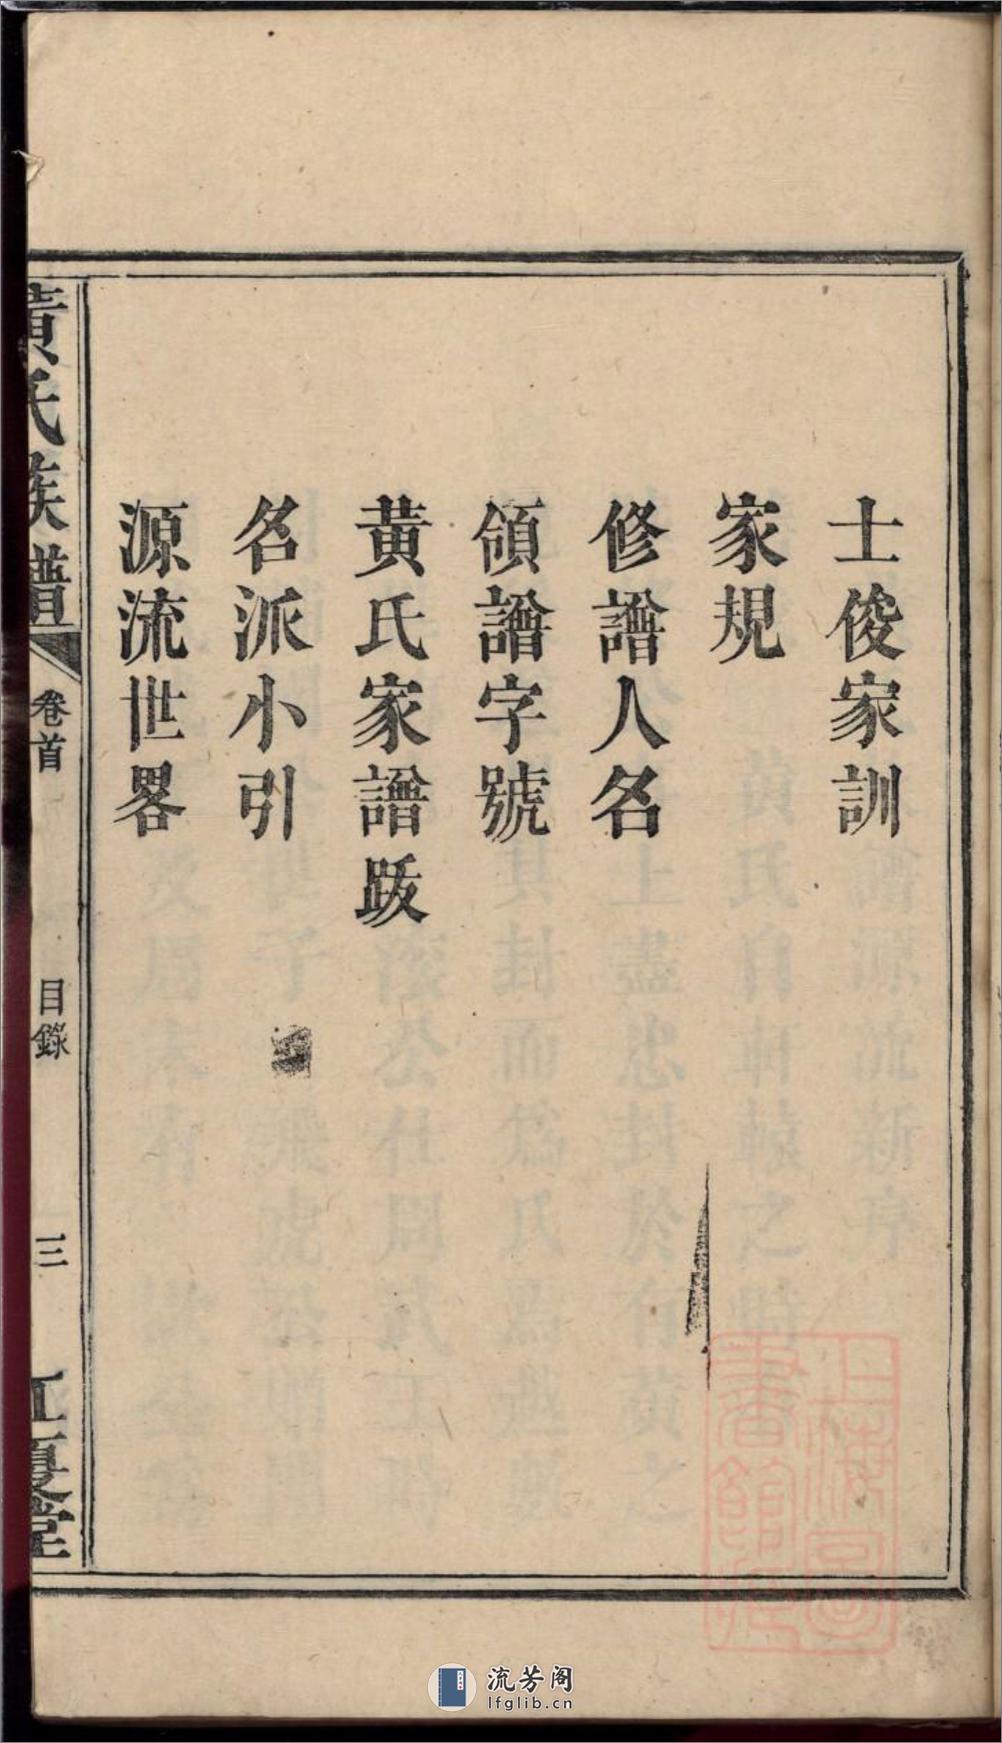 士俊家訓
家規
修譜人名
領譜字號
黄氏家譜䟦
名派小引
源流世畧
黄氏族譜
卷首
目錄
三
江夏堂
上海圖書館藏
流芳阁
lfglib.cn